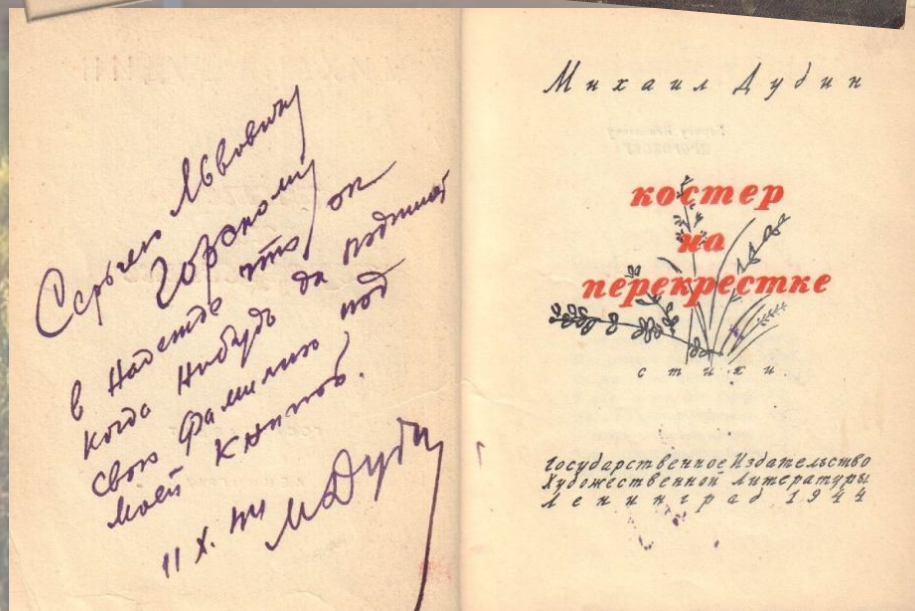 Сергею Львовичу
Горскому
в надежде что он
когда нибудь да подпишет
свою фамилию под
моей книгой.
11 X. 44
М Дудин
Михаил Дудин
костер
на
перекрестке
стихи
Государственное Издательство
Художественной Литературы
Ленинград 1944